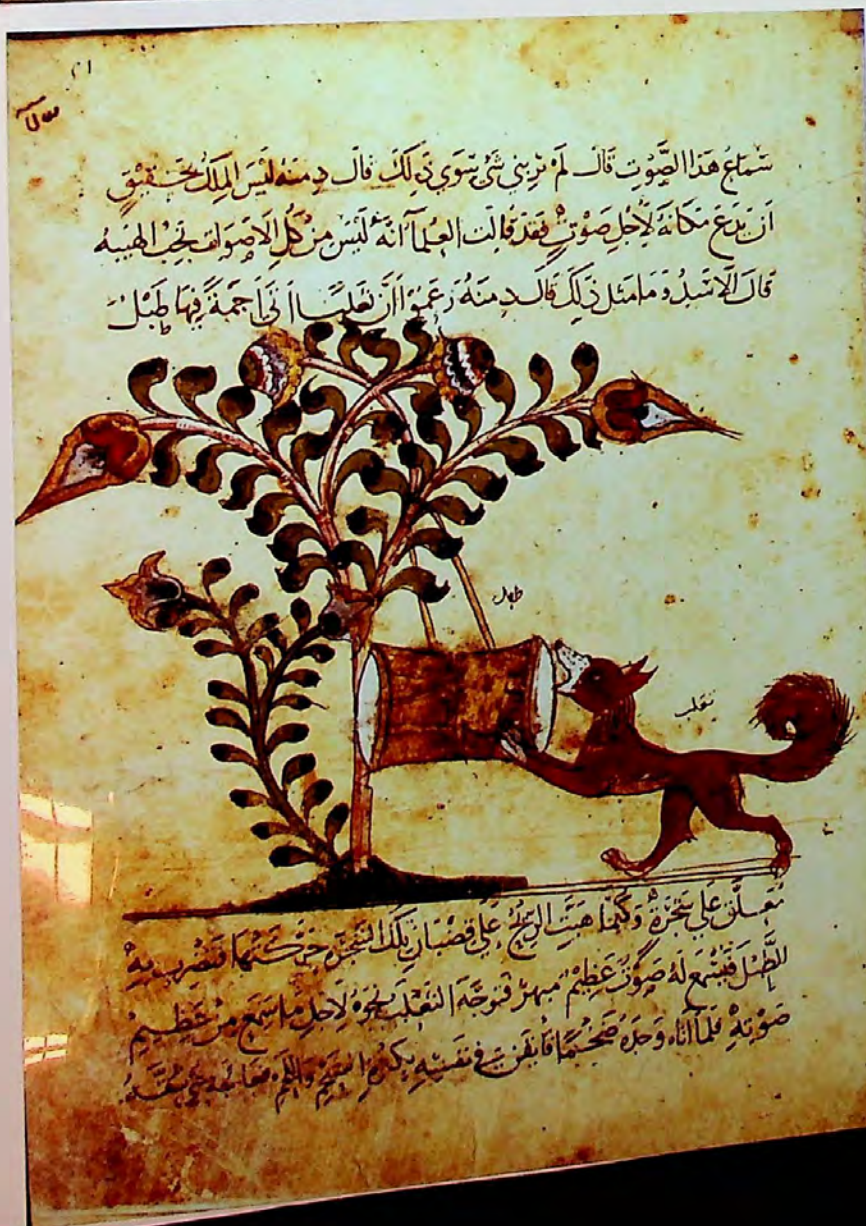 ٤١
سَمَاعُ هَذَا الصَّوْتِ قَالَ لَمْ يَرِبْنِي شَيْءٌ سِوَي ذَلِكَ قَالَ دِمْنَهُ لَيْسَ الْمَلِكُ بِحَقِيقٍ
اَنْ يَدَعَ مَكَانَهُ لِأَجْلِ صَوْتٍ فَقَدْ قَالَتِ الْعُلَمَآ اَنَّهُ لَيْسَ مِنْ كُلِّ الْاَصْوَاتِ تَجِبُ الْهَيْبَه
قَالَ الْاَسَدُ وَمَا مَثَلُ ذَلِكَ قَالَ دِمْنَهُ زَعَمُوْا اَنَّ ثَعْلَبًا اَتَى اَجَمَةً فِيْهَا طَبْلٌ
طبل
ثعلب
مُعَلَّقٌ عَلَي شَجَرَةٍ وَكُلَّمَا هَبَّتِ الرِّيْحُ عَلَي قُضْبَانِ تِلْكَ الشَّجَرَةِ حَرَّكَتْهَا فَتَضْرِبُ بِهِ
الطَّبْلَ فَيُسْمَعُ لَهُ صَوْتٌ عَظِيْمٌ فَتَوَجَّهَ الثَّعْلَبُ نَحْوَهُ لِأَجْلِ مَا سَمِعَ مِنْ عَظِيْمِ
صَوْتِهِ فَلَمَّا اَتَاهُ وَجَدَهُ ضَخْمًا فَاَيْقَنَ فِي نَفْسِهِ بِكَثْرَةِ الشَّحْمِ وَاللَّحْمِ فَعَالَجَهُ حَتَّى شَقَّهُ